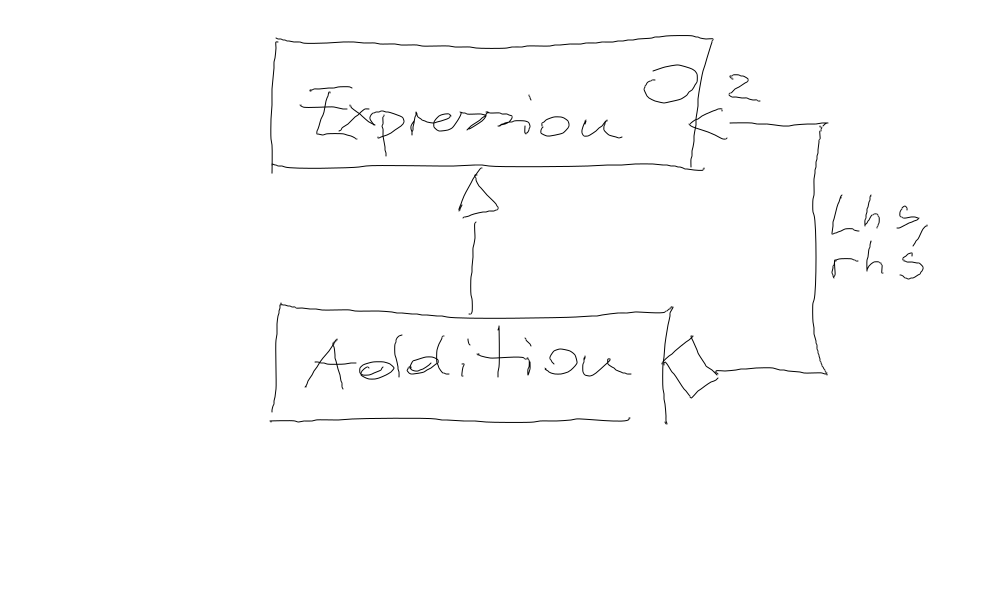 Expression
2
Lhs,
rhs
Addition